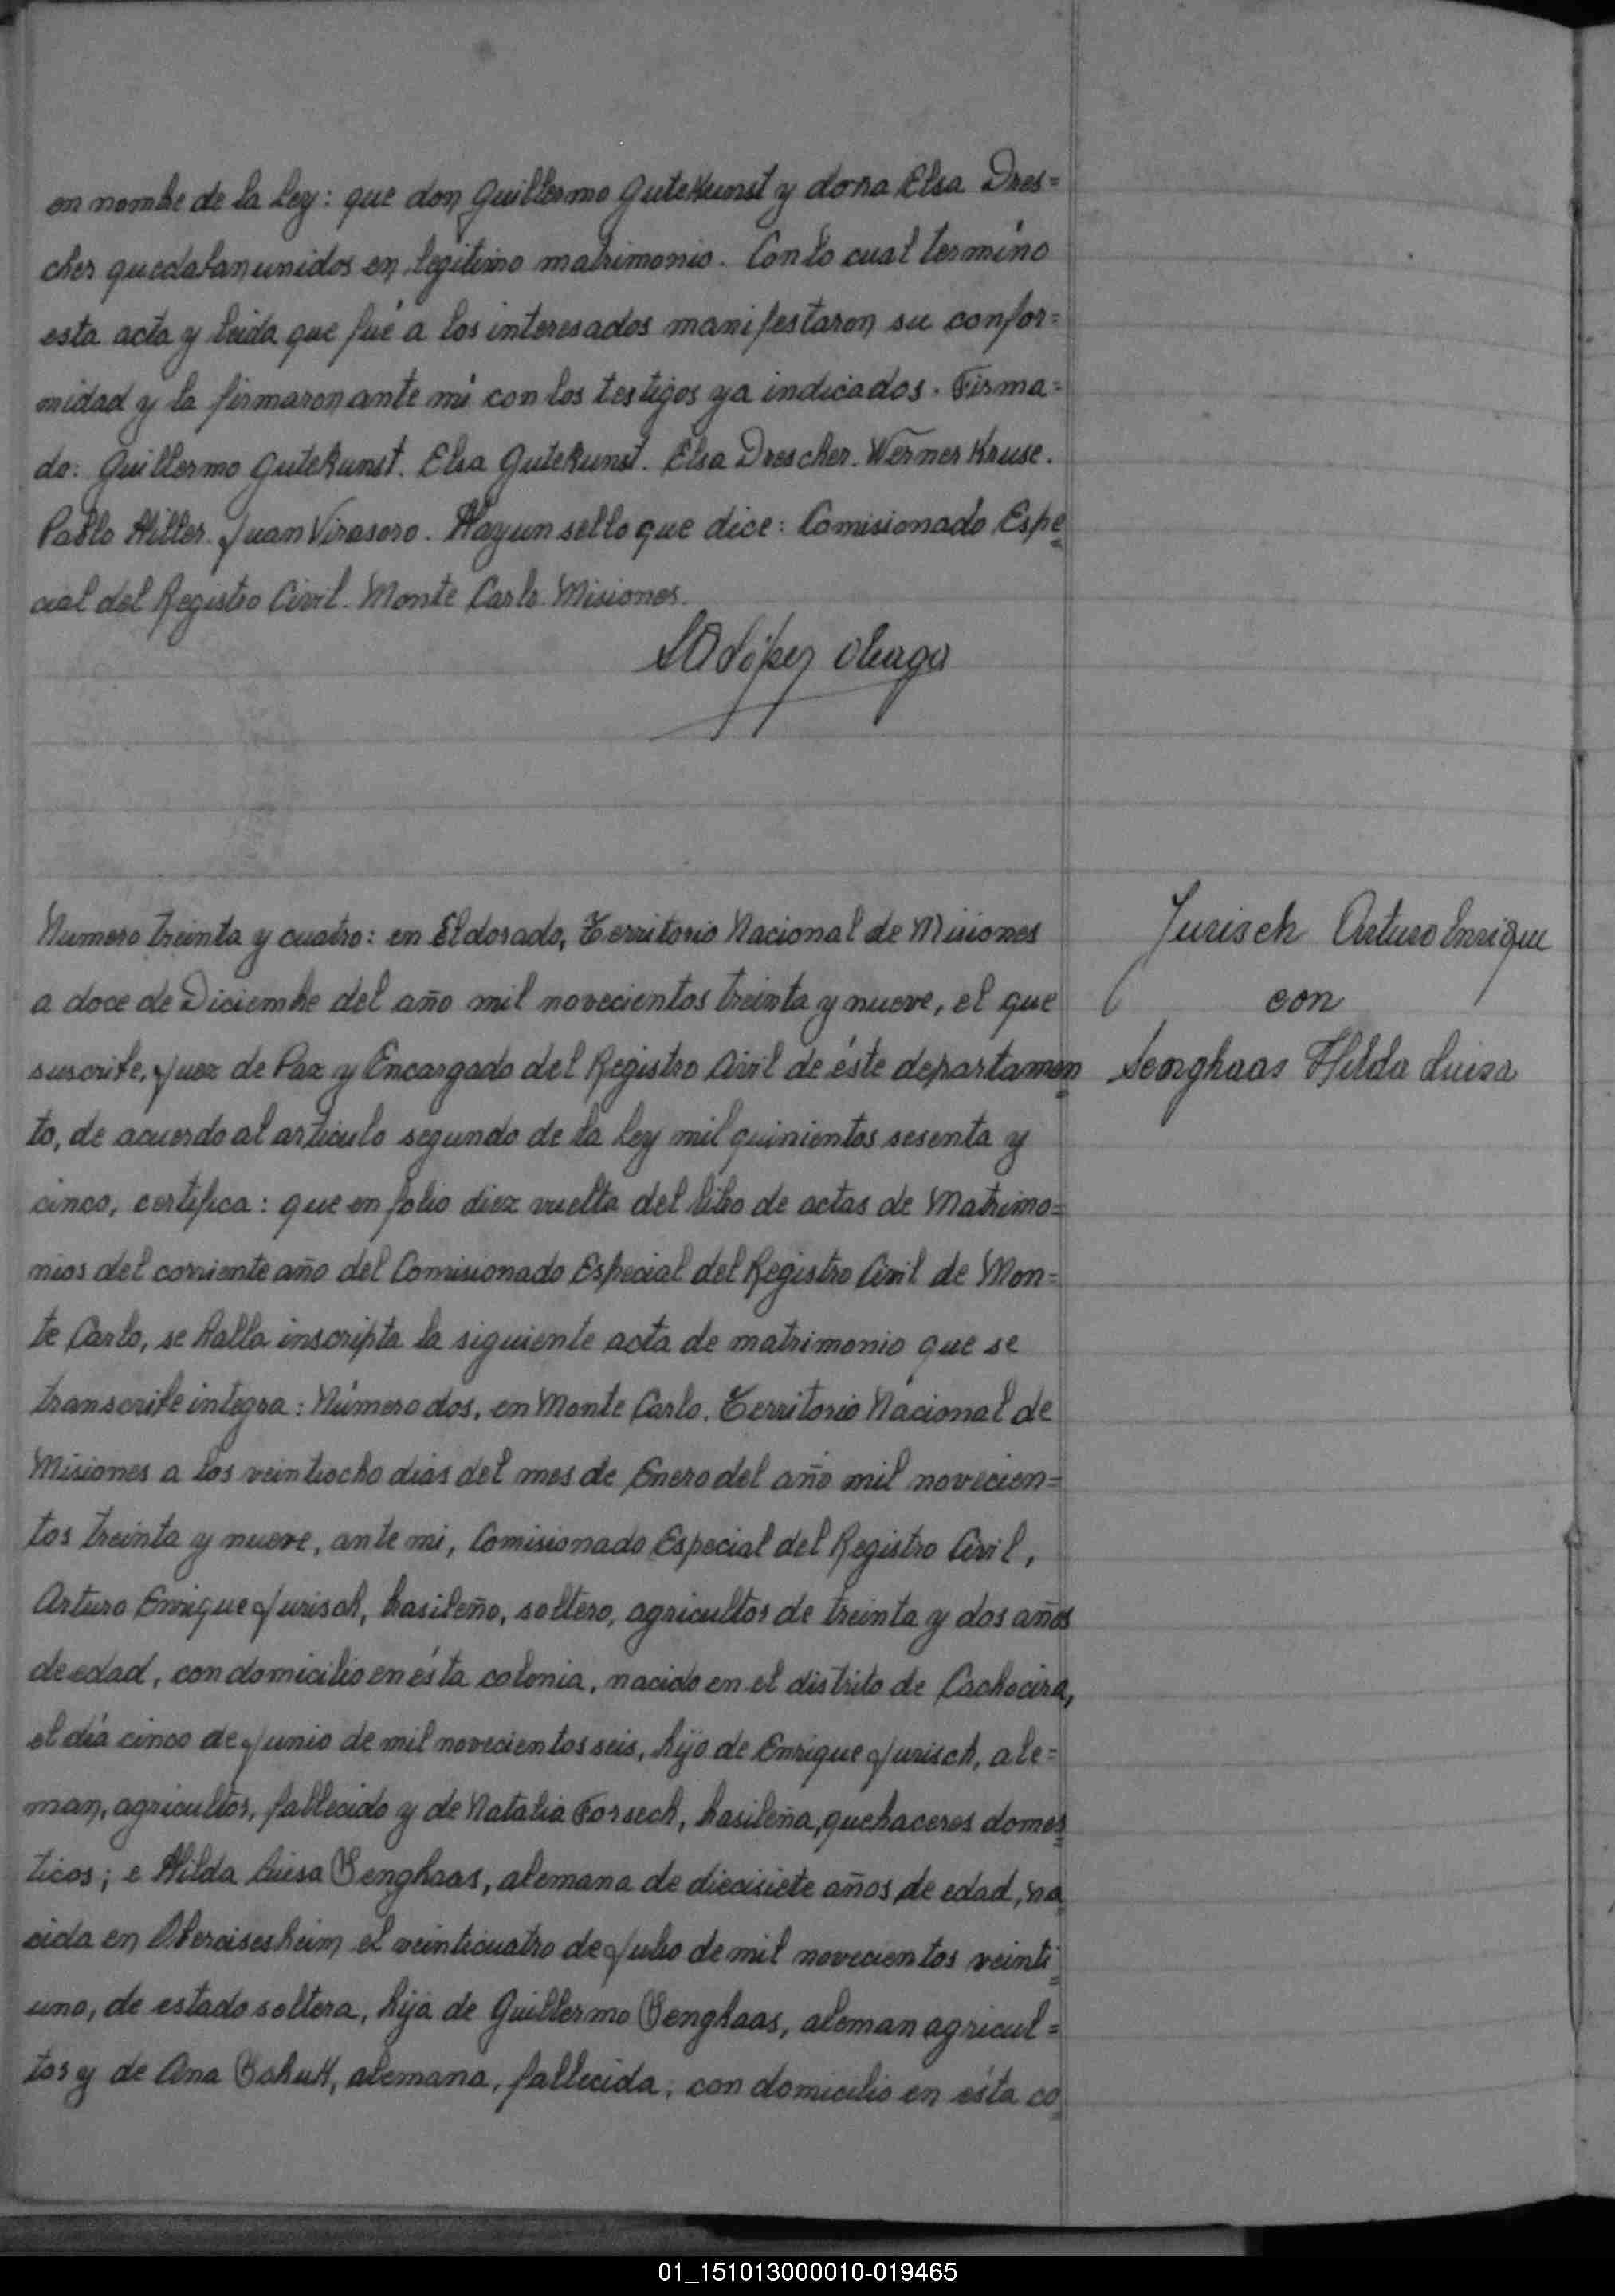 en nombre de la Ley: que don Guillermo Gutekunst y doña Elsa Dres=
cher quedaban unidos en legítimo matrimonio. Con lo cual termino
esta acta y leida que fué a los interesados manifestaron su confor=
midad y la firmaron ante mi con los testigos ya indicados. Firma=
do: Guillermo Gutekunst. Elsa Gutekunst. Elsa Drescher. Werner Kruse.
Pablo Hiller. Juan Virasoro. Hay un sello que dice: Comisionado Espe
cial del Registro Civil. Monte Carlo. Misiones.
Numero treinta y cuatro: en Eldorado, Territorio Nacional de Misiones
a doce de Diciembre del año mil novecientos treinta y nueve, el que
suscribe, Juez de Paz y Encargado del Registro Civil de éste departamen
to, de acuerdo al artículo segundo de la Ley mil quinientos sesenta y
cinco, certifica: que en folio diez vuelta del libro de actas de Matrimo=
nios del corriente año del Comisionado Especial del Registro Civil de Mon=
te Carlo, se halla inscripta la siguiente acta de matrimonio que se
transcribe integra: Número dos, en Monte Carlo, Territorio Nacional de
Misiones a los veintiocho dias del mes de Enero del año mil novecien=
tos treinta y nueve, ante mi, Comisionado Especial del Registro Civil,
Arturo Enrique Jurisch, brasileño, soltero, agricultor de treinta y dos años
de edad, con domicilio en ésta colonia, nacido en el distrito de Cachoeira,
el día cinco de Junio de mil novecientos seis, hijo de Enrique Jurisch, ale=
man, agricultor, fallecido y de Natalia Forsech, brasileña, quehaceres domes
ticos; e Hilda Luisa Senghaas, alemana de diecisiete años de edad, na
cida en Obereisesheim el veinticuatro de Julio de mil novecientos veinti
uno, de estado soltera, hija de Guillermo Senghaas, aleman agricul=
tor y de Ana, alemana, fallecida; con domicilio en ésta co
Jurisch Arturo Enrique
con
Senghaas Hilda Luisa
01_151013000010-019465